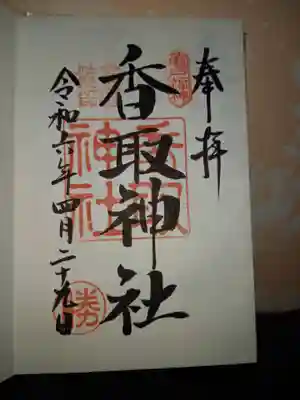 奉拝
香取神社
香取
神社
令和六年四月二十九日
勝